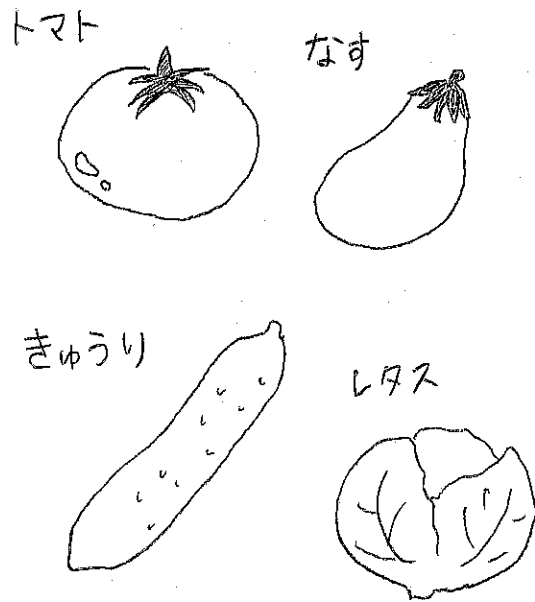 トマト
なす
きゅうり
レタス